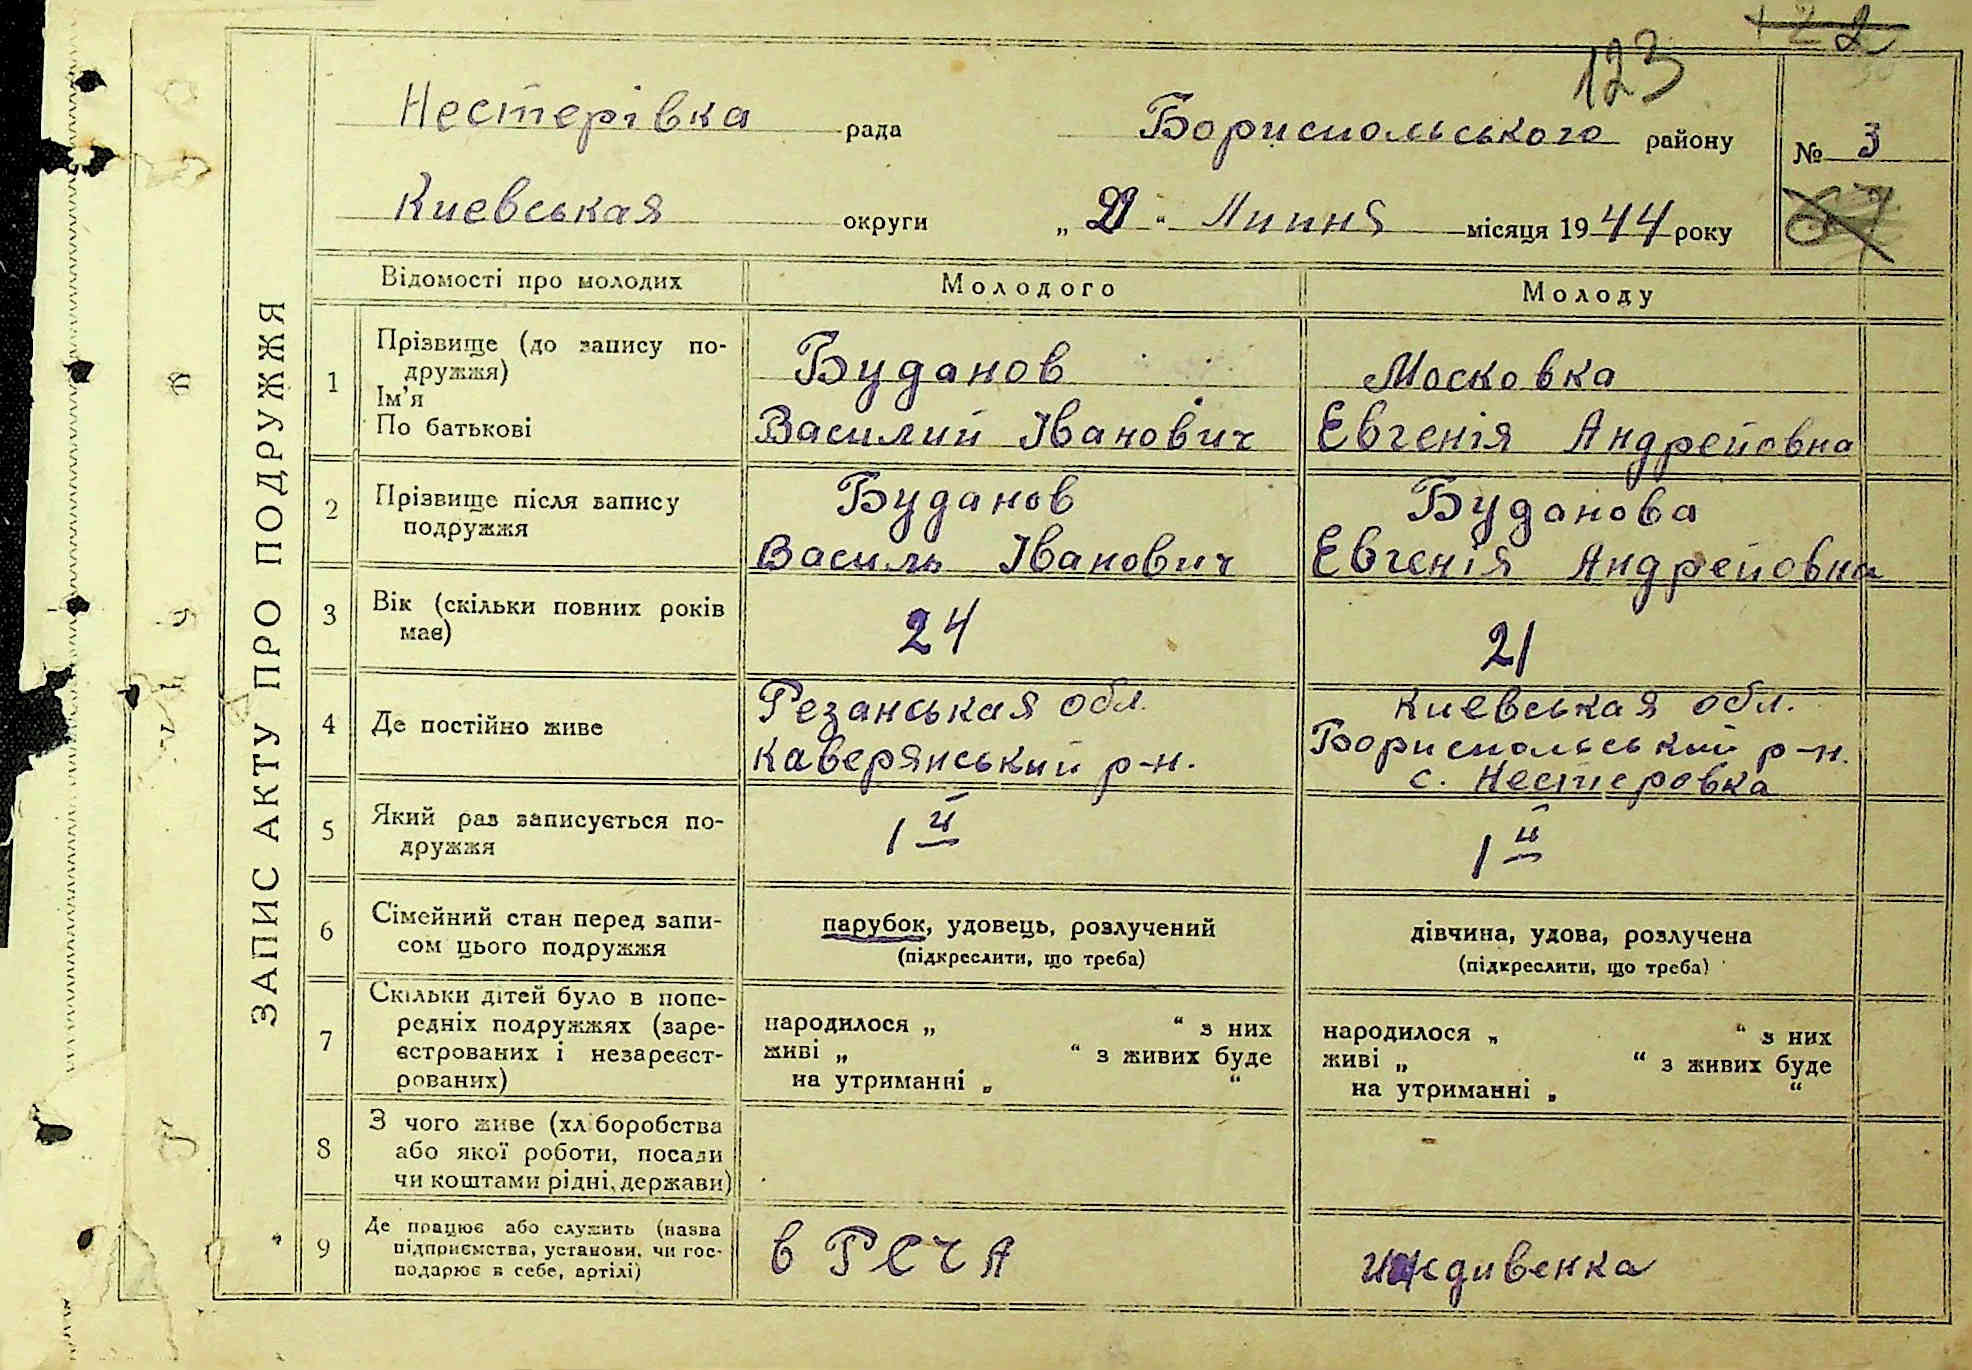 123
Нестерівка рада Бориспольського району № 3
Киевськая округи „21“ Липня місяця 1944 року
ЗАПИС АКТУ ПРО ПОДРУЖЖЯ
Відомості про молодих Молодого Молоду
1 Прізвище (до запису по-
дружжя)
Ім'я
По батькові
Буданов
Василий Іванович
Московка
Евгенія Андрейовна
2 Прізвище після запису
подружжя
Буданов
Василь Іванович
Буданова
Евгенія Андрейовна
3 Вік (скільки повних років
має)
24
21
4 Де постійно живе
Резанськая обл.
Каверянський р-н.
Киевськая обл.
Бориспольський р-н.
с. Нестеровка
5 Який раз записується по-
дружжя
1й
1й
6 Сімейний стан перед запи-
сом цього подружжя
парубок, удовець, розлучений
(підкреслити, що треба)
дівчина, удова, розлучена
(підкреслити, що треба)
7 Скільки дітей було в попе-
редніх подружжях (заре-
єстрованих і незареєст-
рованих)
народилося „ “ з них
живі „ “ з живих буде
на утриманні „ “
народилося „ “ з них
живі „ “ з живих буде
на утриманні „ “
8 З чого живе (хліборобства
або якої роботи, посади
чи коштами рідні, держави)
9 Де працює або служить (назва
підприємства, установи, чи гос-
подарює в себе, артілі)
в РСЧА
иждивенка